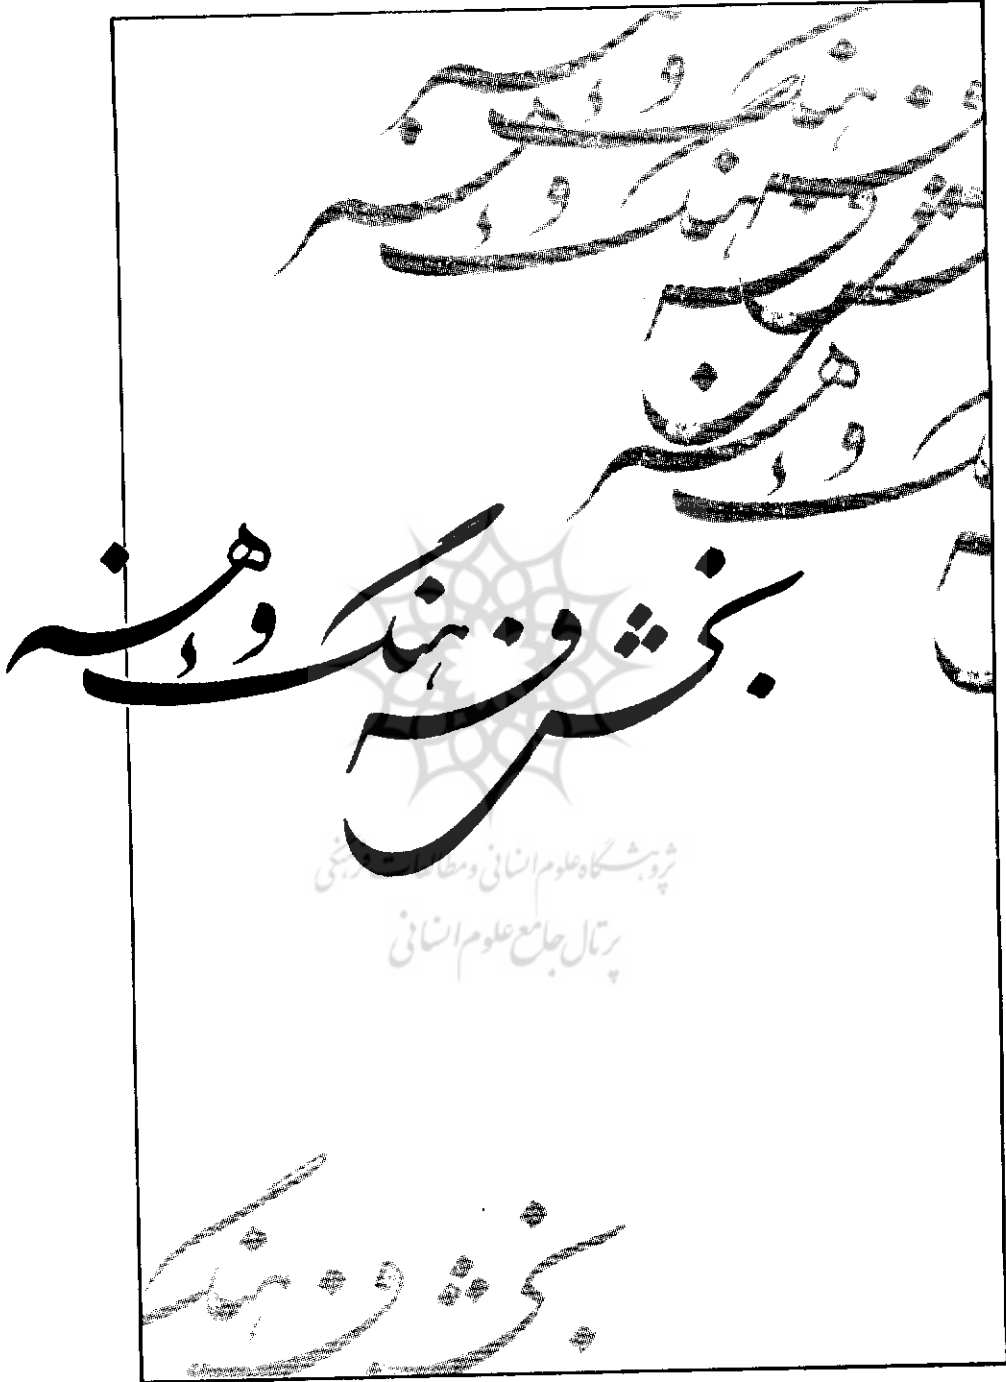 بخش فرهنگ و هنر
پژوهشگاه علوم انسانی و مطالعات فرهنگی
پرتال جامع علوم انسانی
بخش فرهنگ